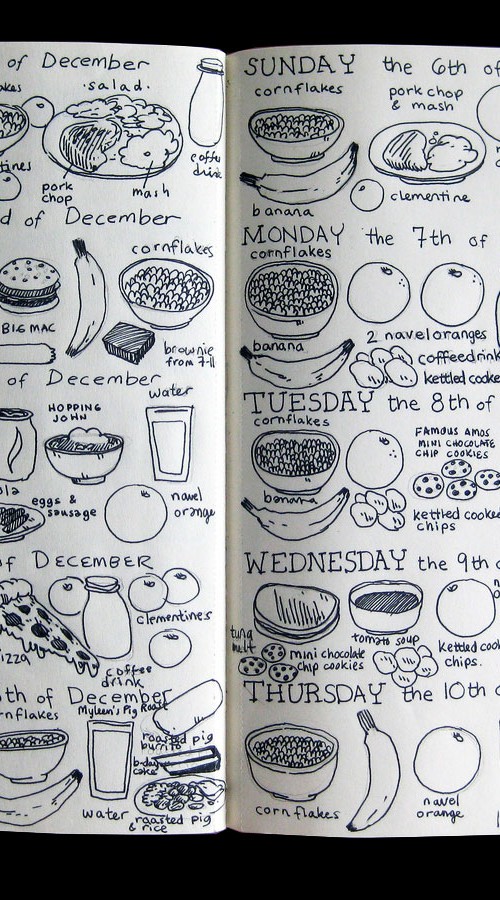 of December
akes
salad
coffee
drink
tines
pork
chop
mash
d of December
cornflakes
BIG MAC
brownie
from 7-11
of December
water
HOPPING
JOHN
ola
eggs &
sausage
navel
orange
of DECEMBER
clementines
pizza
coffee
drink
th of December
rnflakes
Myleen's Pig Roast
roasted pig
burrito
b-day
cake
water
roasted pig
& rice
SUNDAY the 6th of
cornflakes
pork chop
& mash
banana
clementine
MONDAY the 7th of
cornflakes
2 navel oranges
banana
coffee drink
kettled cooke
TUESDAY the 8th of
cornflakes
FAMOUS AMOS
MINI CHOCOLATE
CHIP COOKIES
banana
kettled cooked
chips
WEDNESDAY the 9th o
tuna
melt
tomato soup
mini chocolate
chip cookies
kettled cook
chips.
THURSDAY the 10th o
cornflakes
navel
orange